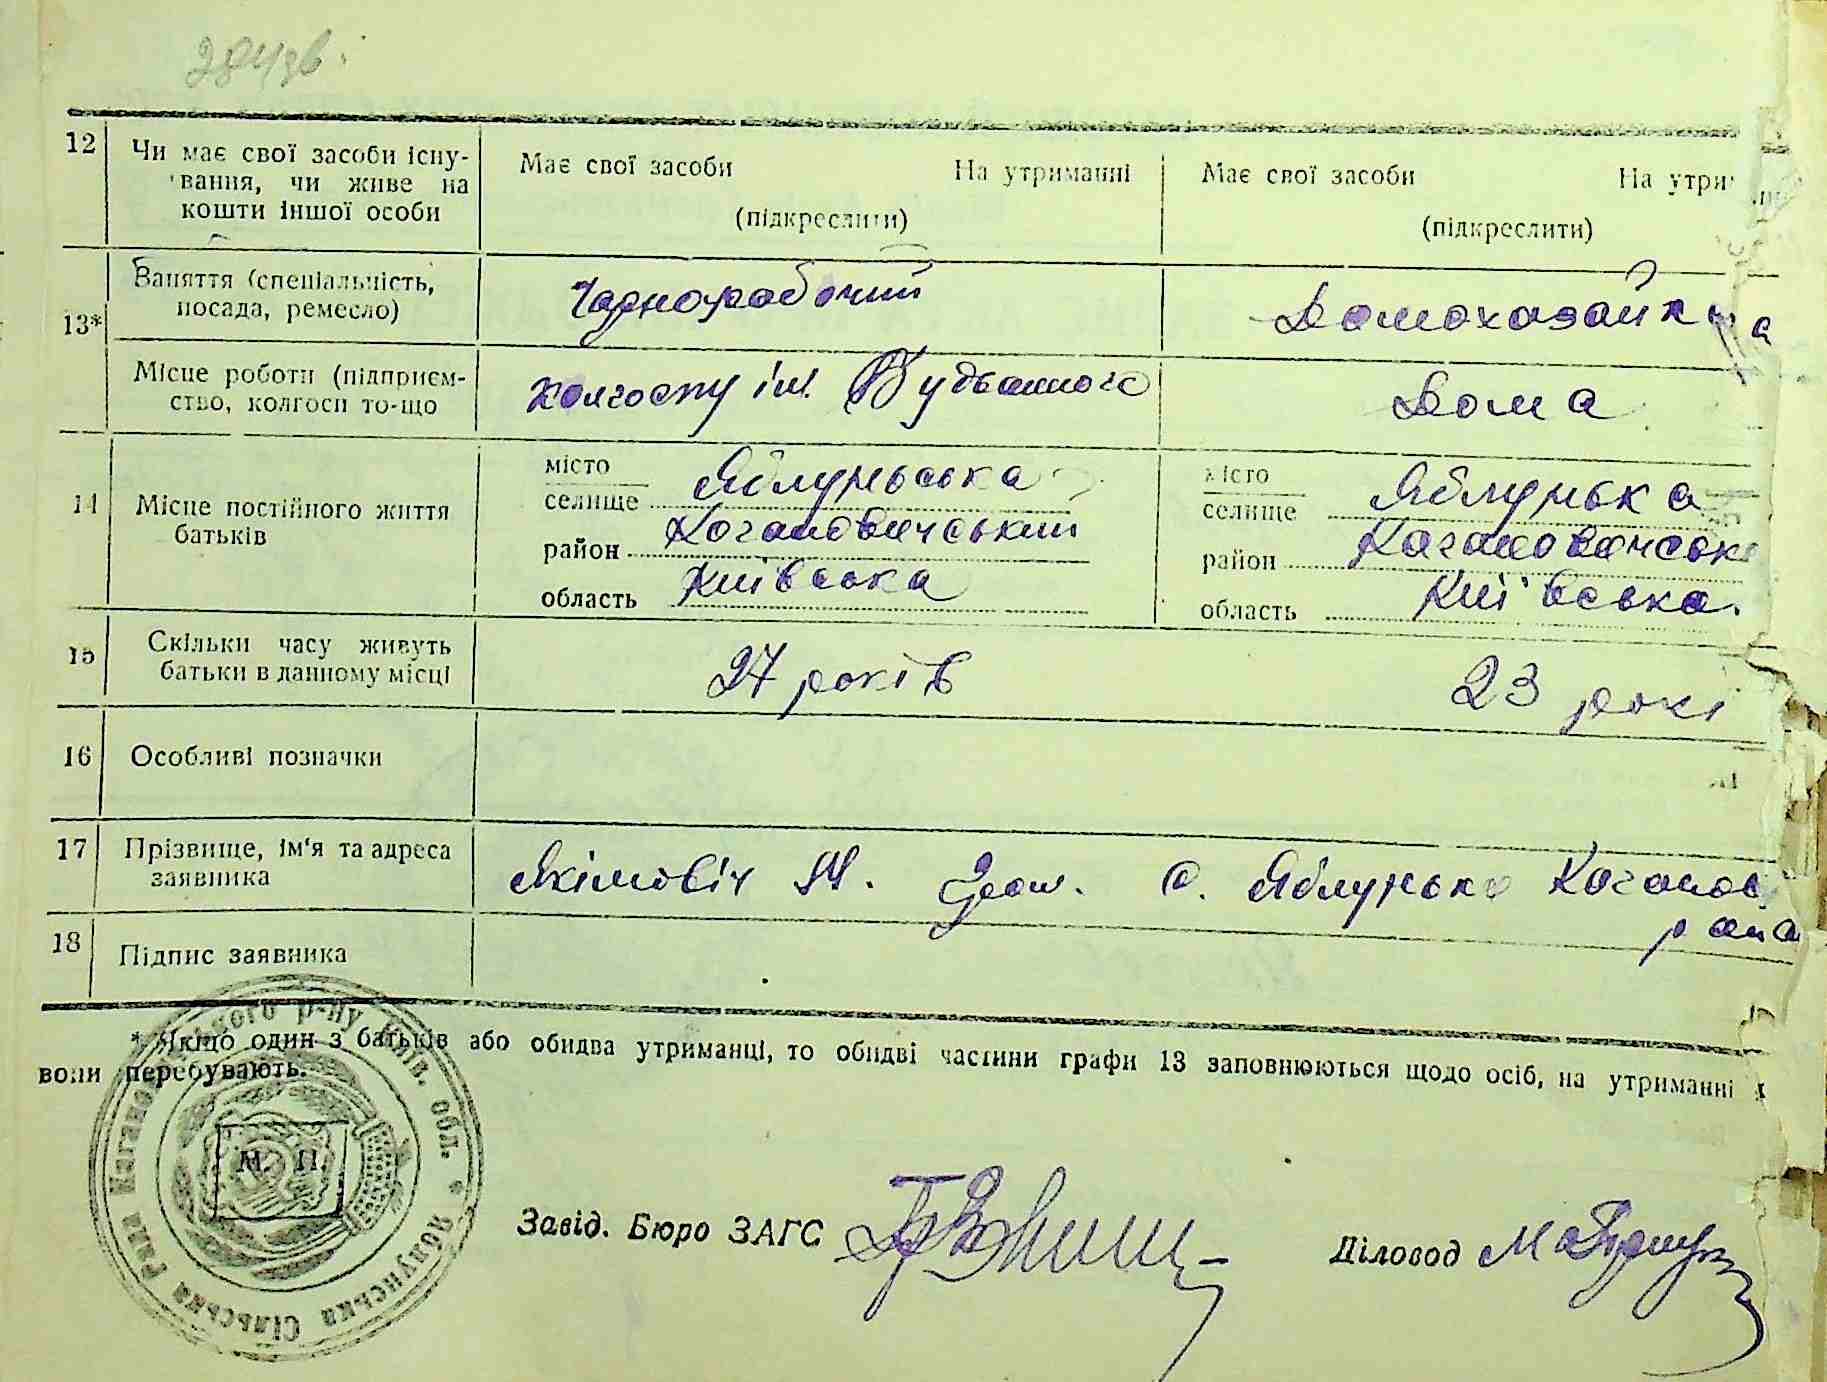 12
Чи має свої засоби існу-
вання, чи живе на
кошти іншої особи
Має свої засоби На утриманні
(підкреслити)
Має свої засоби На утри
(підкреслити)
13*
Заняття (спеціальність,
посада, ремесло)
Чорнорабочий
Домохазайка
Місце роботи (підприєм-
ство, колгосп то-що
Колгоспу ім. Будьонного
Дома
14
Місце постійного життя
батьків
місто
селище Яблуньська
район Кагановичський
область Київська
місто
селище Яблунька
район Кагановичськ
область Київська.
15
Скільки часу живуть
батьки в данному місці
27 років
23 рокі
16
Особливі позначки
17
Прізвище, ім'я та адреса
заявника
Якімовіч М. с. Яблунько Каганов
рана
18
Підпис заявника
* Якщо один з батьків або обидва утриманці, то обидві частини графи 13 заповнюються щодо осіб, на утриманні
вони перебувають.
М. П.
Яблунська Сільська Рада Кагановицького р-ну Київ. обл. *
Завід. Бюро ЗАГС
Діловод